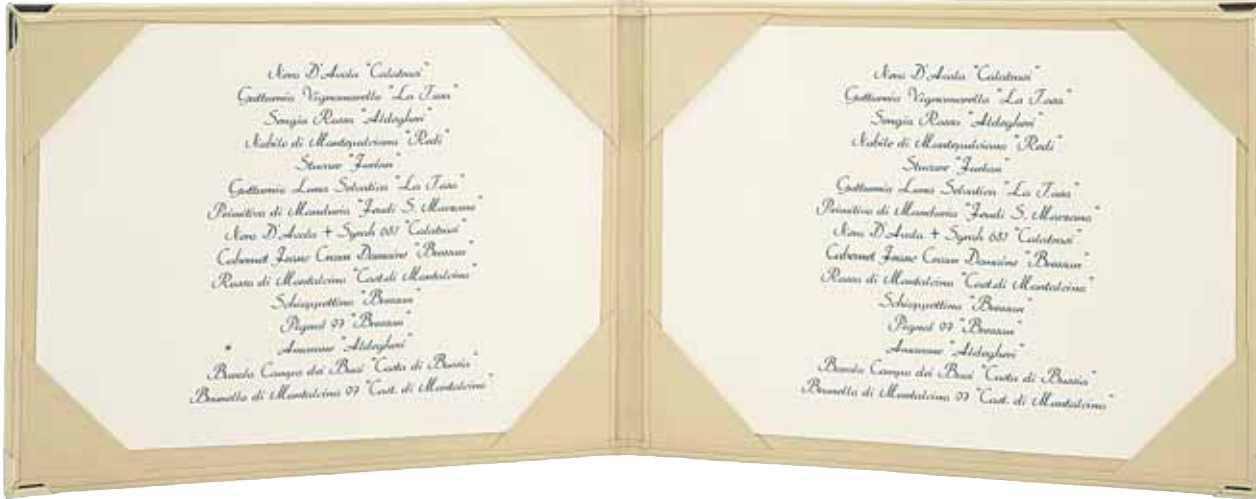 Nero D'Avola "Calatrasi"
Gutturnio Vignamorello "La Tosa"
Sengia Rossa "Aldegheri"
Nobile di Montepulciano "Redi"
"Furlan"
Gutturnio Luna Selvatica "La Tosa"
Primitivo di Manduria "Feudi S. Marzano"
Nero D'Avola + Syrah "Calatrasi"
Cabernet Franc Domaine "Bressan"
Rosso di Montalcino "Cast. di Montalcino"
Schioppettino "Bressan"
Pignol 97 "Bressan"
* Amarone "Aldegheri"
Barolo Campo dei Buoi "Costa di Bussia"
Brunello di Montalcino 97 "Cast. di Montalcino"
Nero D'Avola "Calatrasi"
Gutturnio Vignamorello "La Tosa"
Sengia Rossa "Aldegheri"
Nobile di Montepulciano "Redi"
"Furlan"
Gutturnio Luna Selvatica "La Tosa"
Primitivo di Manduria "Feudi S. Marzano"
Nero D'Avola + Syrah "Calatrasi"
Cabernet Franc Domaine "Bressan"
Rosso di Montalcino "Cast. di Montalcino"
Schioppettino "Bressan"
Pignol 97 "Bressan"
Amarone "Aldegheri"
Barolo Campo dei Buoi "Costa di Bussia"
Brunello di Montalcino 97 "Cast. di Montalcino"